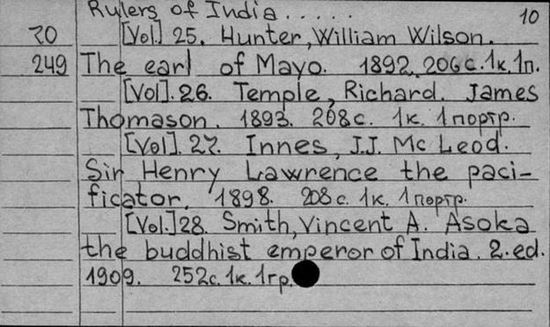 Rulers of India...... 10
20 [Vol.] 25. Hunter, William Wilson.
249 The earl of Mayo. 1892. 206 с. 1к. 1п.
[Vol]. 26. Temple, Richard. James
Thomason. 1893. 208 с. 1к. 1 портр.
[Vol]. 27. Innes, J.J. Mc Leod.
Sir Henry Lawrence the paci-
ficator. 1898. 208 с. 1к. 1 портр.
[Vol.] 28. Smith, Vincent A. Asoka
the buddhist emperor of India. 2. ed.
1909. 252 с. 1к. 1гр.